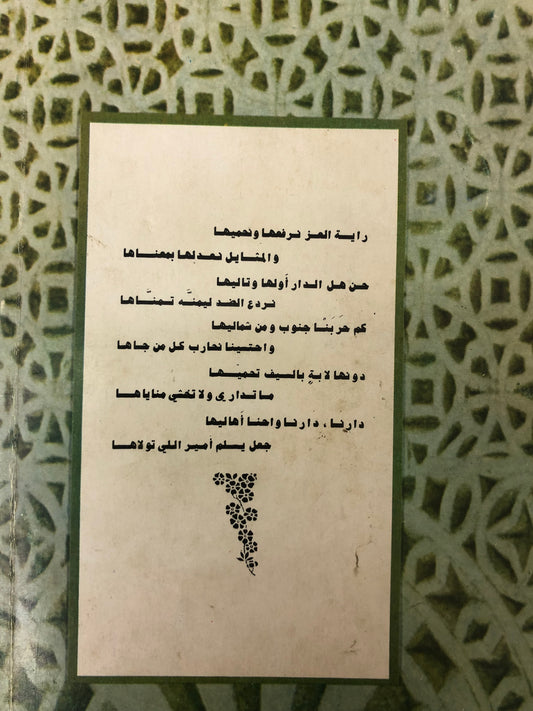 رايـة العـز نرفعها ونحميهـا
والمتـايل نعـدلها بمعنـاها
حـن هـل الـدار أولها وتاليها
نردع الضد ليمنَّـه تـمنَّـاها
كم حَرَبْنـا جنوب ومن شماليها
واحتمينا نحارب كـل من جـاها
دونها لابـةٍ بالـيف تحميهـا
ما تداري ولا تخشي مناياهـا
دارنـا، دارنـا واحنا أهاليها
جعل يـلم أميـر اللي تولاهـا